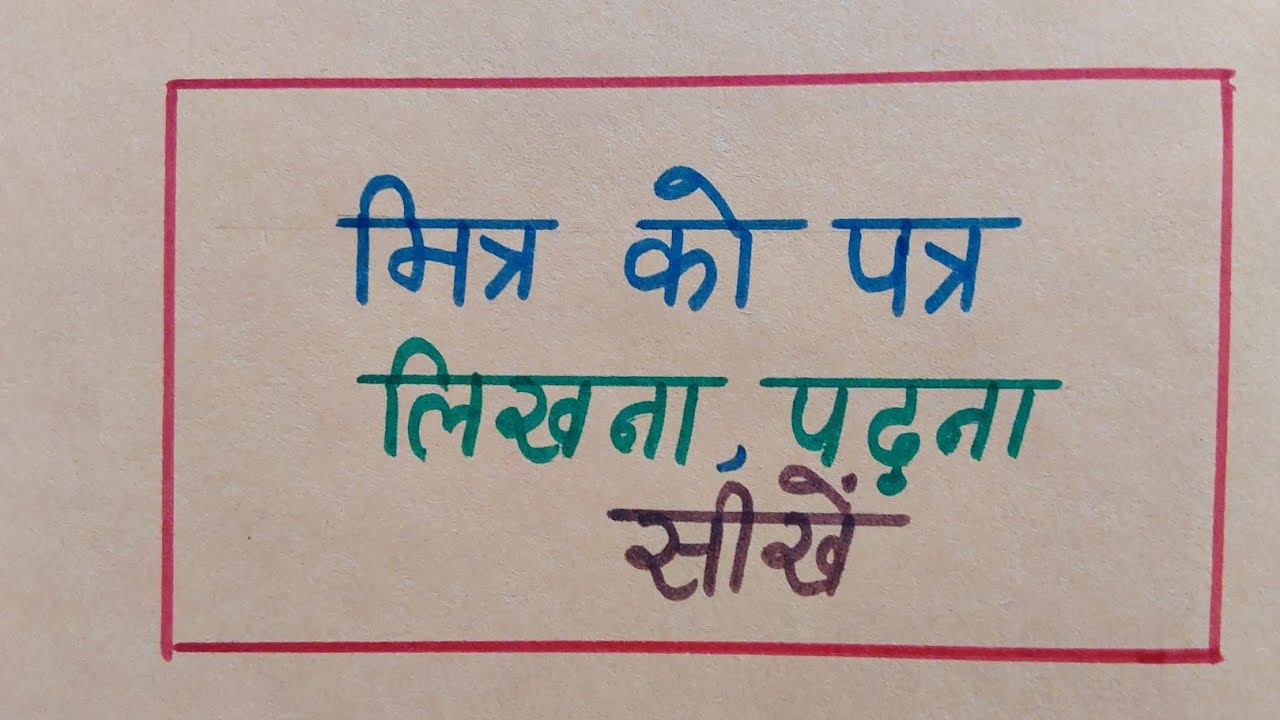 मित्र को पत्र
लिखना, पढ़ना
सीखें